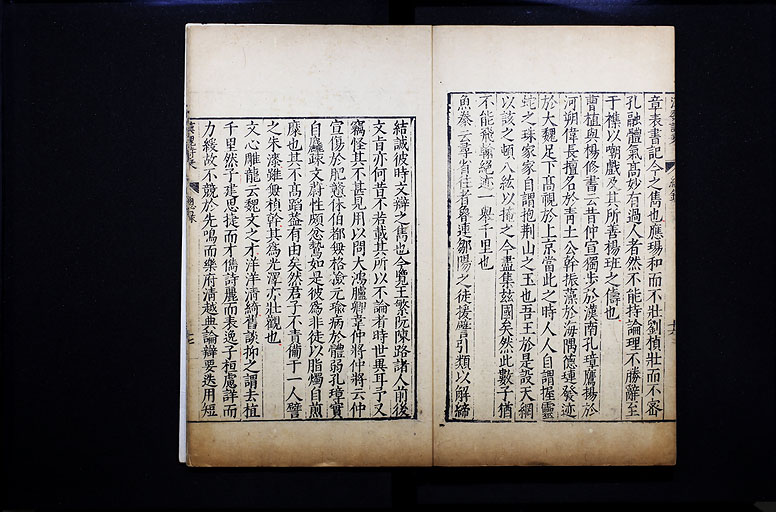 章表書記今之儁也應瑒和而不壯劉楨壯而不密
孔融體氣高妙有過人者然不能持論理不勝辭至
于樵以嘲戲及其所善楊班之儔也
曹植與楊修書云昔仲宣獨步於漢南孔璋鷹揚於
河朔偉長擅名於青土公幹振藻於海隅德璉發迹
於大魏足下高視於上京當此之時人人自謂握靈
蛇之珠家家自謂抱荆山之玉也吾王於是設天網
以該之頓八紘以掩之今盡集玆國矣然此數子猶
不能飛翰絶迹一舉千里也
魚豢云尋省往者魯連鄒陽之徒援譬引類以解締
結誠彼時文辯之儁也今覽王繁阮陳路諸人前後
文㫖亦何昔不若哉其所以不論者時世異耳予又
竊怪其不甚見用以問大鴻臚卿韋仲將仲將云仲
宣傷於肥戇休伯都無格檢元瑜病於體弱孔璋實
自麤疎文蔚性頗忿鷙如是彼爲非徒以脂燭自煎
糜也其不髙蹈葢有由矣然君子不責備于一人譬
之朱漆雖無楨幹其爲光澤亦壯觀也
文心雕龍云魏文之才洋洋清綺舊談抑之謂去植
千里然子建思捷而才儁詩麗而表逸子桓慮詳而
力緩故不競於先鳴而樂府清越典論辯要迭用短